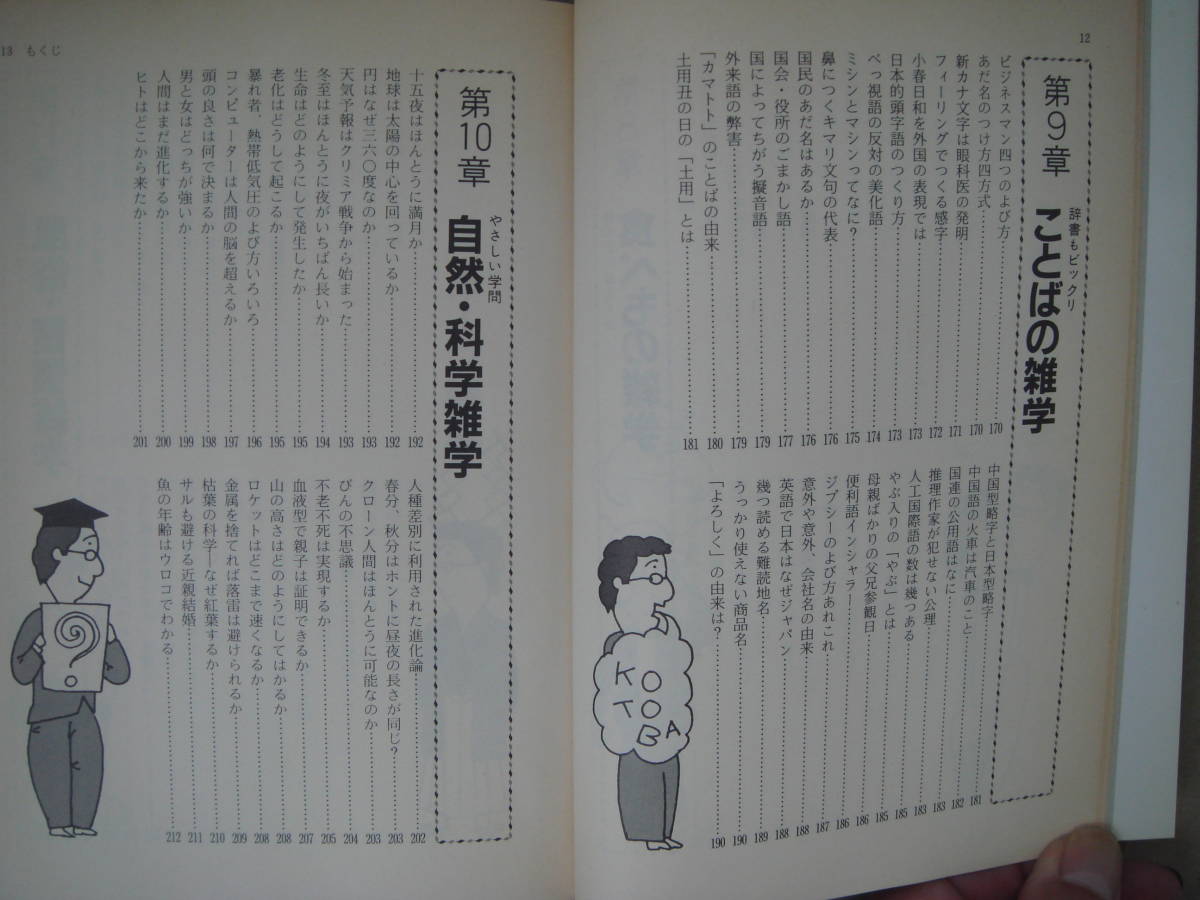 12
第9章
辞書もビックリ
ことばの雑学
ビジネスマン四つのよび方……170
あだ名のつけ方四方式……170
新カナ文字は眼科医の発明……171
フィーリングでつくる感字……172
小春日和を外国の表現では……173
日本的頭字語のつくり方……173
べっ視語の反対の美化語……174
ミシンとマシンってなに?……175
鼻につくキマリ文句の代表……176
国民のあだ名はあるか……176
国会・役所のごまかし語……177
国によってちがう擬音語……179
外来語の弊害……179
「カマトト」のことばの由来……180
土用丑の日の「土用」とは……181
中国型略字と日本型略字……181
中国語の火車は汽車のこと……182
国連の公用語はなに……183
推理作家が犯せない公理……183
人工国際語の数は幾つある……185
やぶ入りの「やぶ」とは……185
母親ばかりの父兄参観日……186
便利語インシャラー……186
ジプシーのよび方あれこれ……187
意外や意外、会社名の由来……188
英語で日本はなぜジャパン……188
幾つ読める難読地名……189
うっかり使えない商品名……190
「よろしく」の由来は?……190
KO
TO
BA
13 もくじ
第10章
やさしい学問
自然・科学雑学
十五夜はほんとうに満月か……192
地球は太陽の中心を回っているか……192
円はなぜ三六〇度なのか……193
天気予報はクリミア戦争から始まった……193
冬至はほんとうに夜がいちばん長いか……194
生命はどのようにして発生したか……195
老化はどうして起こるか……195
暴れ者、熱帯低気圧のよび方いろいろ……196
コンピューターは人間の脳を超えるか……197
頭の良さは何で決まるか……198
男と女はどっちが強いか……199
人間はまだ進化するか……200
ヒトはどこから来たか……201
人種差別に利用された進化論……202
春分、秋分はホントに昼夜の長さが同じ?……203
クローン人間はほんとうに可能なのか……203
びんの不思議……204
不老不死は実現するか……205
血液型で親子は証明できるか……207
山の高さはどのようにしてはかるか……208
ロケットはどこまで速くなるか……208
金属を捨てれば落雷は避けられるか……209
枯葉の科学―なぜ紅葉するか……210
サルも避ける近親結婚……211
魚の年齢はウロコでわかる……212
?